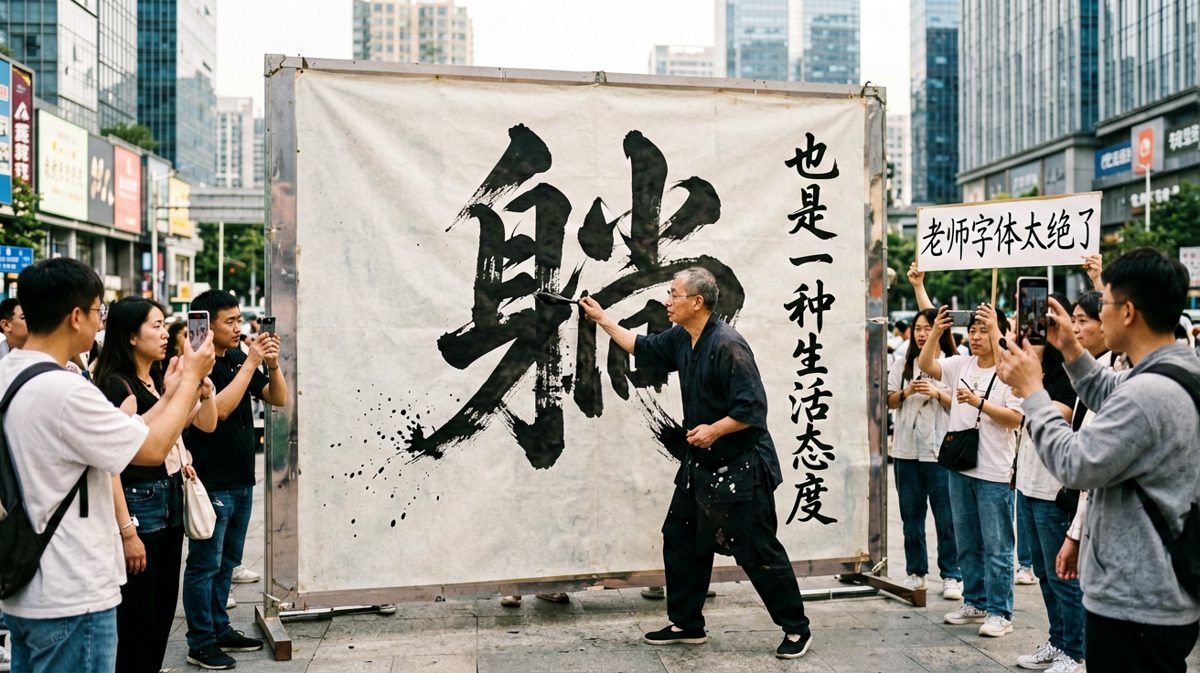 躺
也是一种生活态度
老师字体太绝了